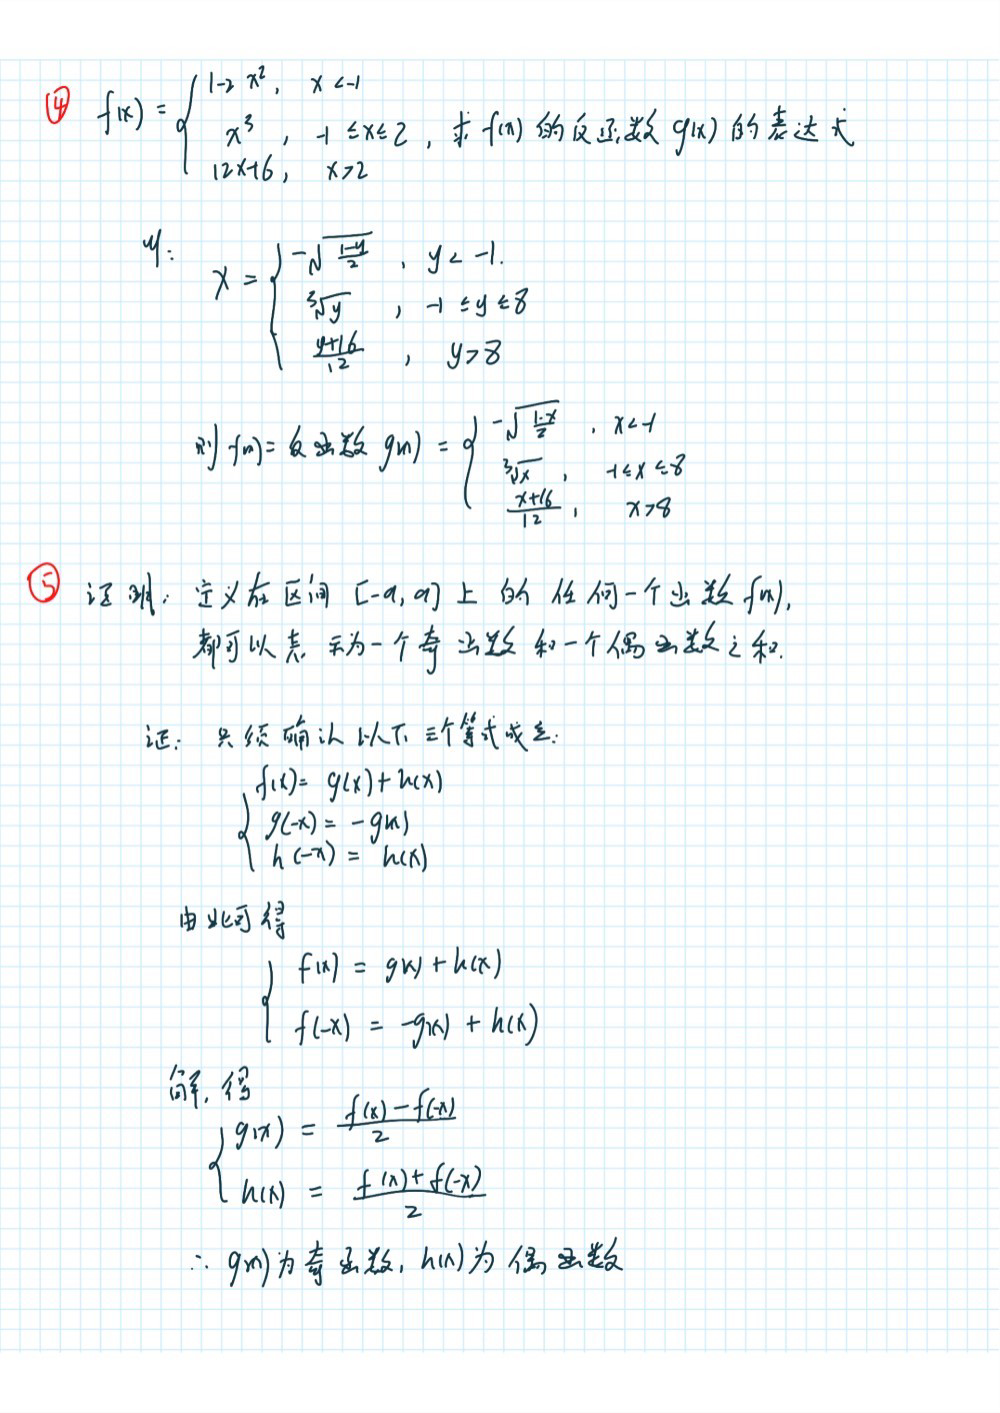 ④ f(x) = { 1-2x², x<-1
x³, -1≤x≤2, 求f(x)的反函数g(x)的表达式
12x-16, x>2
x = { -√((1-y)/2), y<-1.
³√y, -1≤y≤8
(y+16)/12, y>8
则f(x)=反函数g(x) = { -√((1-x)/2), x<-1
³√x, -1≤x≤8
(x+16)/12, x>8
⑤ 证明: 定义在区间[-a,a]上的任何一个函数f(x),
都可以表示为一个奇函数和一个偶函数之和.
证: 只须确认以下三个等式成立:
{ f(x) = g(x)+h(x)
g(-x) = -g(x)
h(-x) = h(x)
由此可得
{ f(x) = g(x)+h(x)
f(-x) = -g(x)+h(x)
解,得
{ g(x) = (f(x)-f(-x))/2
h(x) = (f(x)+f(-x))/2
∴ g(x)为奇函数, h(x)为偶函数